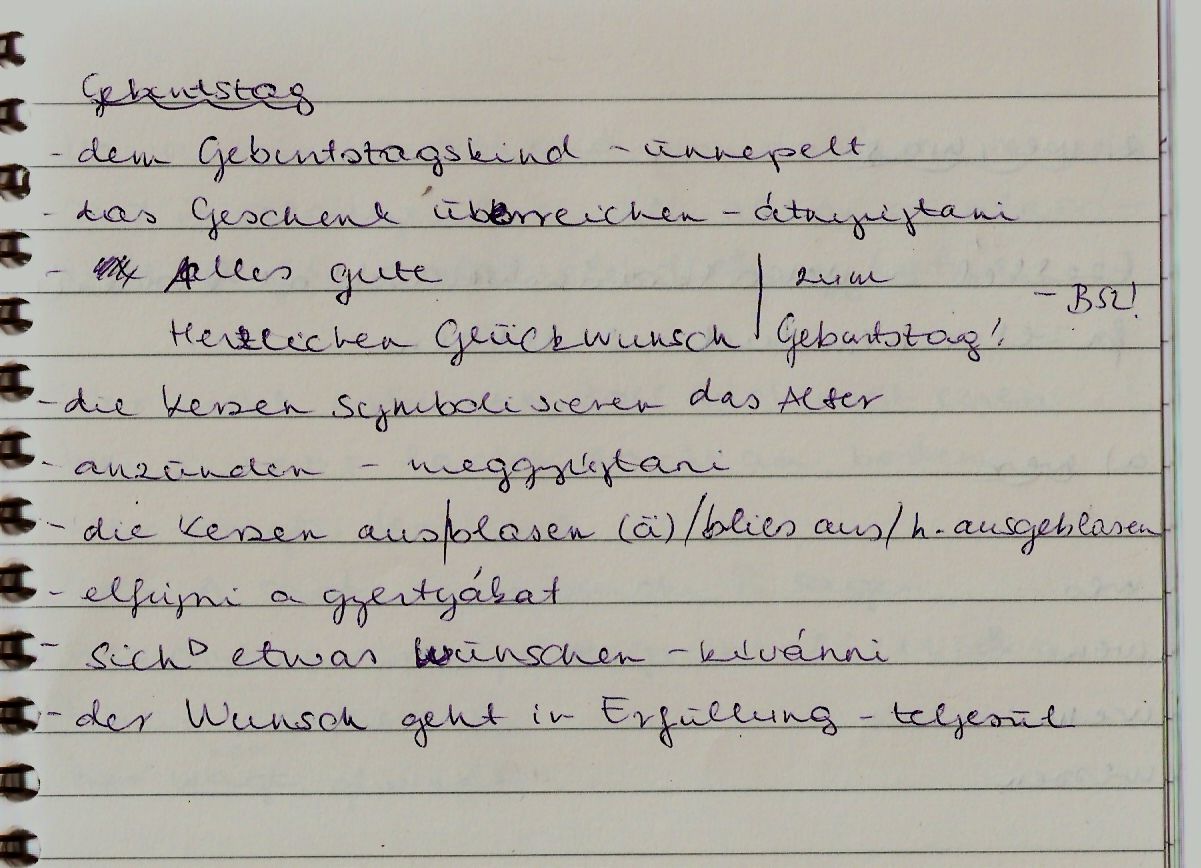 Geburtstag
- dem Geburtstagskind - ünnepelt
- das Geschenk überreichen - átnyújtani
- Alles gute | zum
Herzlichen Glückwunsch | Geburtstag! - BSZ!
- die Kerzen symbolisieren das Alter
- anzünden - meggyújtani
- die Kerzen aus/blasen (ä)/blies aus/h. ausgeblasen
- elfújni a gyertyákat
- sich D etwas wünschen - kívánni
- der Wunsch geht in Erfüllung - teljesül